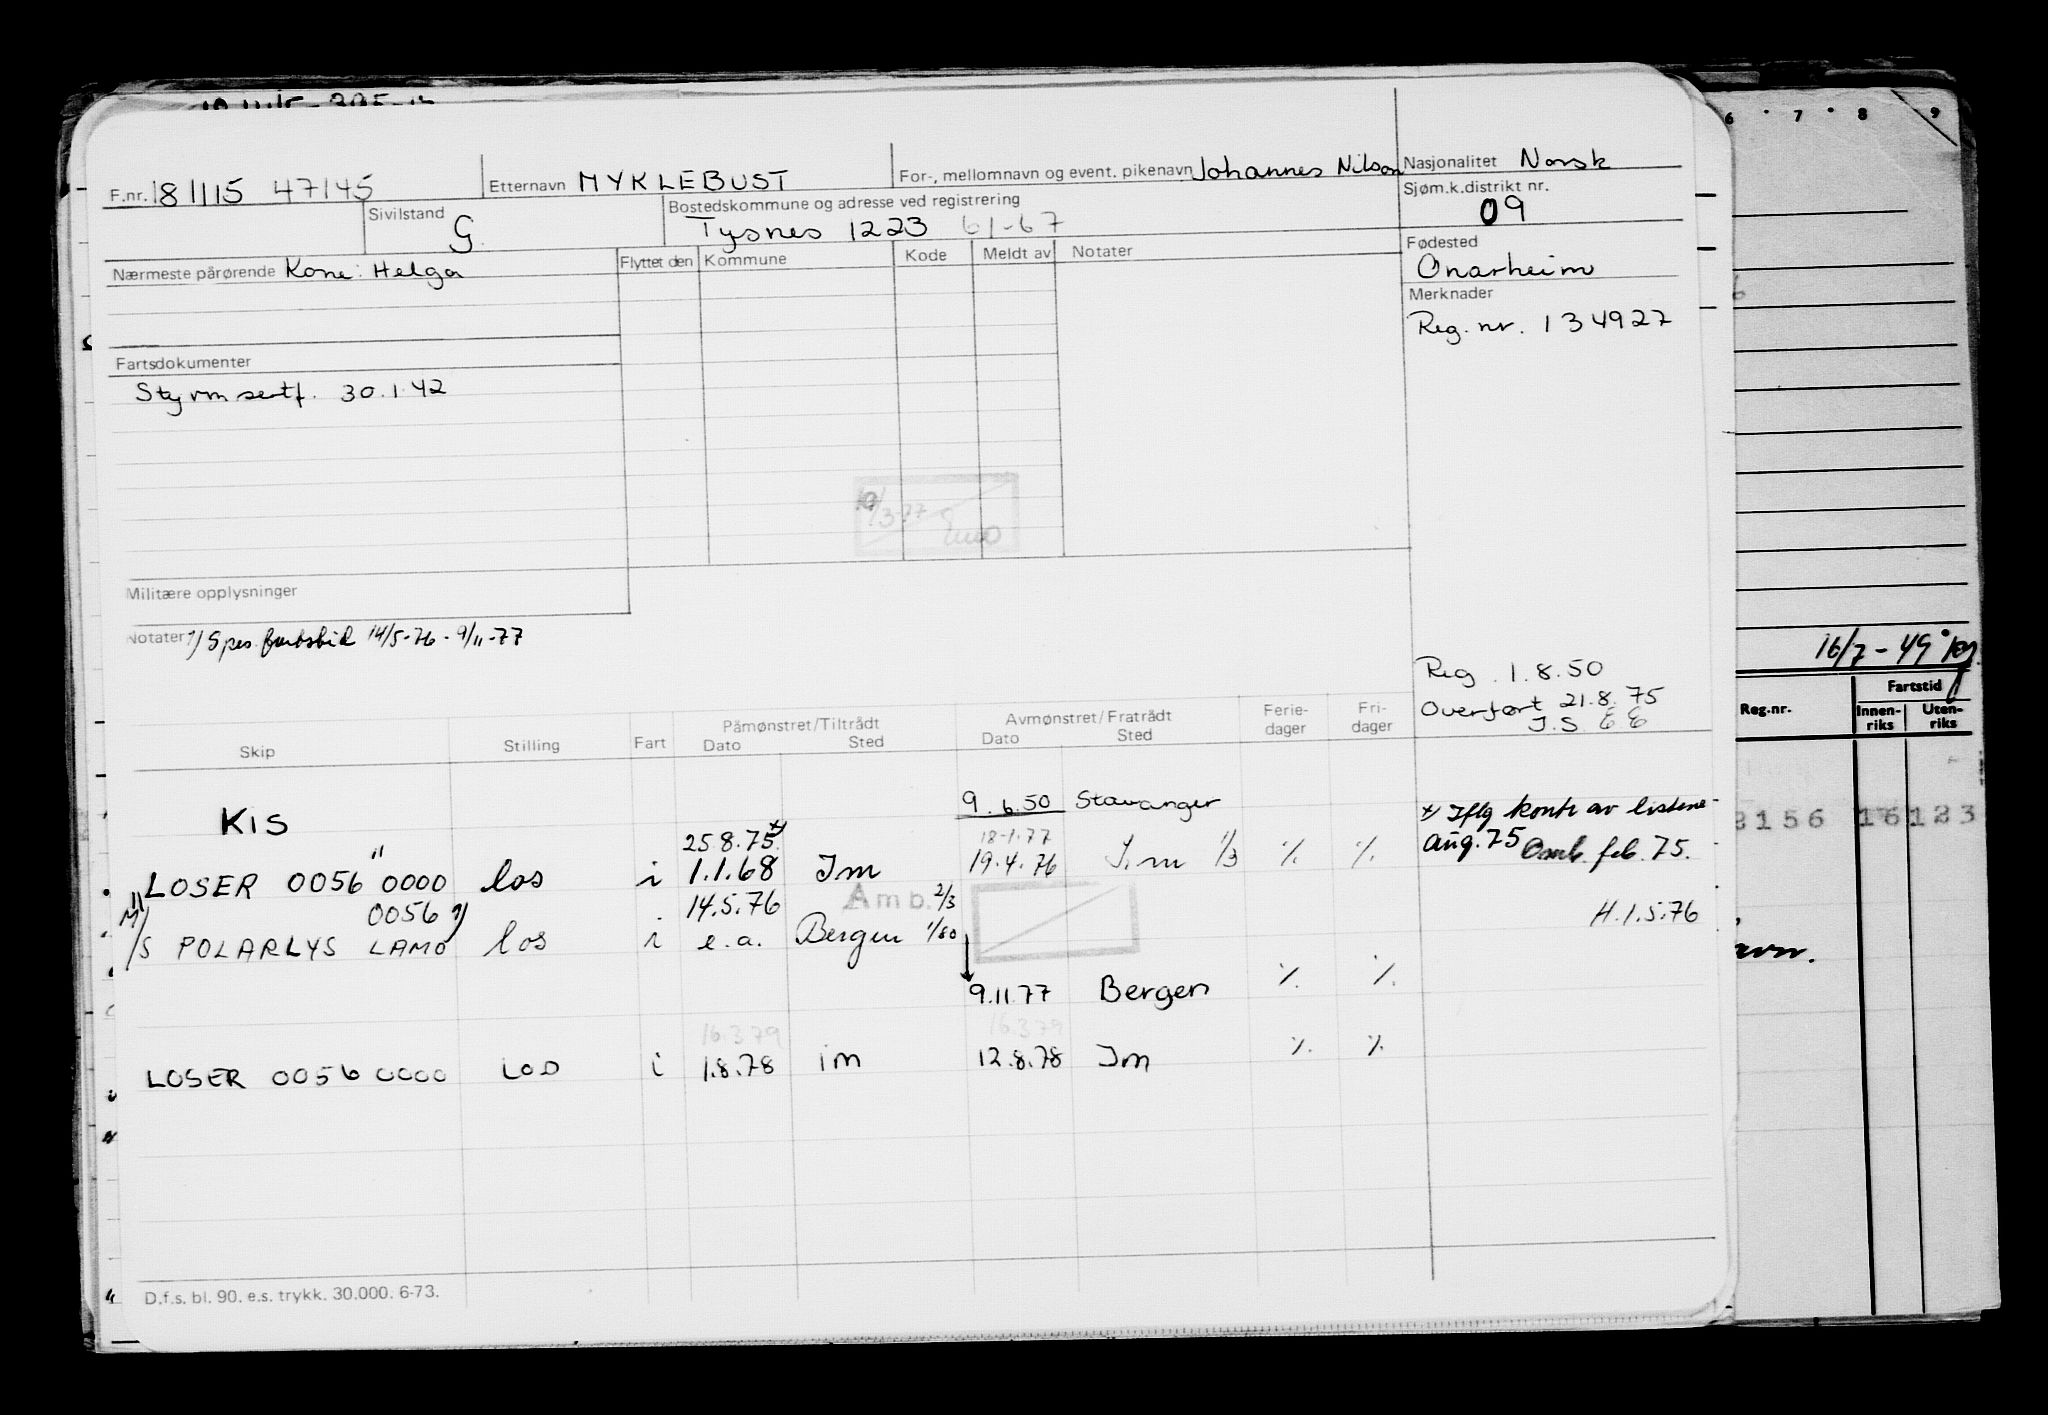 F.nr. 181115 47145 Etternavn MYKLEBUST For-, mellomnavn og event. pikenavn Johannes Nilson Nasjonalitet Norsk
Sivilstand G Bostedskommune og adresse ved registrering Tysnes 1223 61-67 Sjøm.k.distrikt nr. 09
Nærmeste pårørende Kone: Helga Flyttet den Kommune Kode Meldt av Notater Fødested Onarheim
Merknader
Reg. nr. 134927
Fartsdokumenter
Styrm sertf. 30.1.42
Militære opplysninger
Notater 1) Spes. fartstid 14/5-76 - 9/11-77
Reg. 1.8.50
Overført 21.8.75
J.S. EE
Skip Stilling Fart Påmønstret/Tiltrådt Dato Sted Avmønstret/Fratrådt Dato Sted Ferie-dager Fri-dager
9.6.50 Stavanger
KIS
25.8.75 x) 18-1.77 x) Iflg kontr av listene
LOSER 0056 0000 los i 1.1.68 Im 19.4.76 I.m 1/3 % % aug.75 feb. 75.
0056 1) 14.5.76 Amb. 2/3 H.1.5.76
M/S POLARLYS LAMO los i e.a. Bergen 1/80
9.11.77 Bergen % %
16.3.79 16.3.79
LOSER 0056 0000 los i 1.8.78 im 12.8.78 Im % %
D.f.s. bl. 90. e.s. trykk. 30.000. 6-73.
6 7 8 9
16/7-49
Reg.nr. Fartstid
Innen-riks Uten-riks
2156 16123